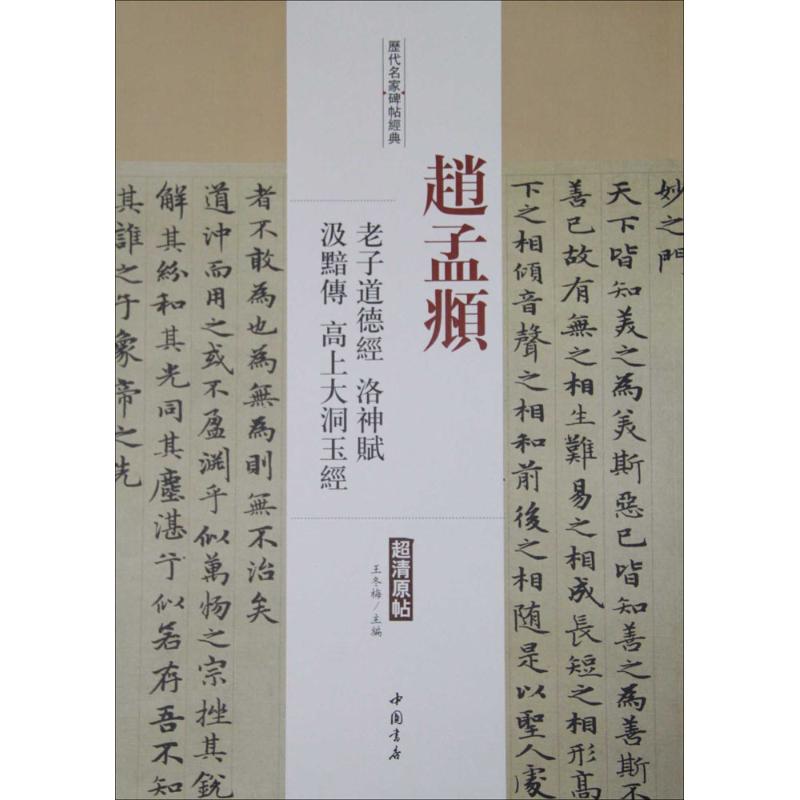 歷代名家碑帖經典
趙孟頫
老子道德經 洛神賦
汲黯傳 高上大洞玉經
超清原帖
王冬梅/主編
中国书店
妙之門
天下皆知美之為美斯惡已皆知善之為善斯不
善已故有無之相生難易之相成長短之相形高
下之相傾音聲之相和前後之相随是以聖人處
者不敢為也為無為則無不治矣
道沖而用之或不盈渊乎似萬物之宗挫其銳
解其紛和其光同其塵湛兮似若存吾不知
其誰之子象帝之先